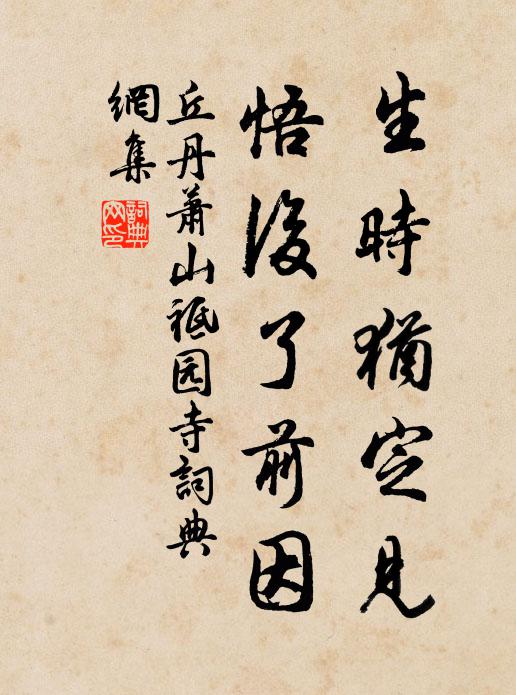 生時猶定見
悟後了前因
丘丹蕭山祇园寺詞典
網集
詞典
網印